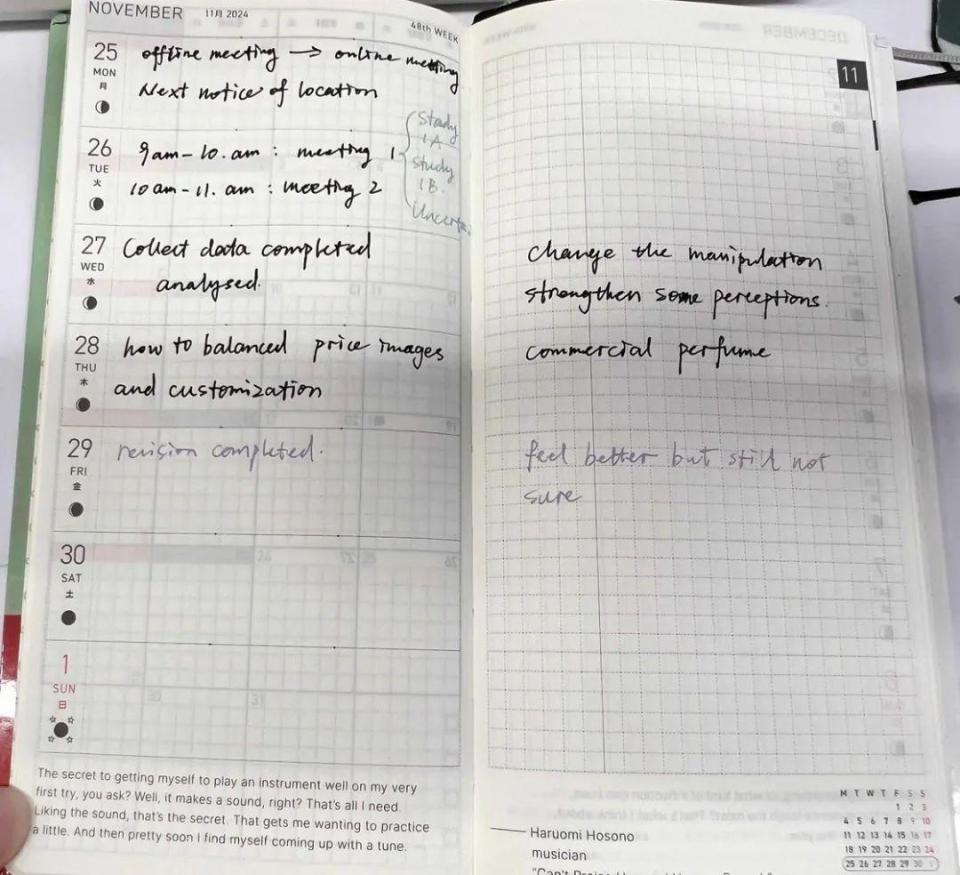 NOVEMBER 11月 2024
48th WEEK
25
MON
月
offline meeting → online meeting
Next notice of location
26
TUE
火
9am-10.am : meeting 1
10am-11.am : meeting 2
Study
1A
Study
1B.
27
WED
水
Collect data completed
analysed.
28
THU
木
how to balanced price images
and customization
29
FRI
金
revision completed.
30
SAT
土
1
SUN
日
The secret to getting myself to play an instrument well on my very
first try, you ask? Well, it makes a sound, right? That's all I need.
Liking the sound, that's the secret. That gets me wanting to practice
a little. And then pretty soon I find myself coming up with a tune.
11
change the manipulation
strengthen some perceptions.
commercial perfume
feel better but still not
sure
Haruomi Hosono
musician
M T W T F S S
1 2 3
4 5 6 7 8 9 10
11 12 13 14 15 16 17
18 19 20 21 22 23 24
25 26 27 28 29 30 1